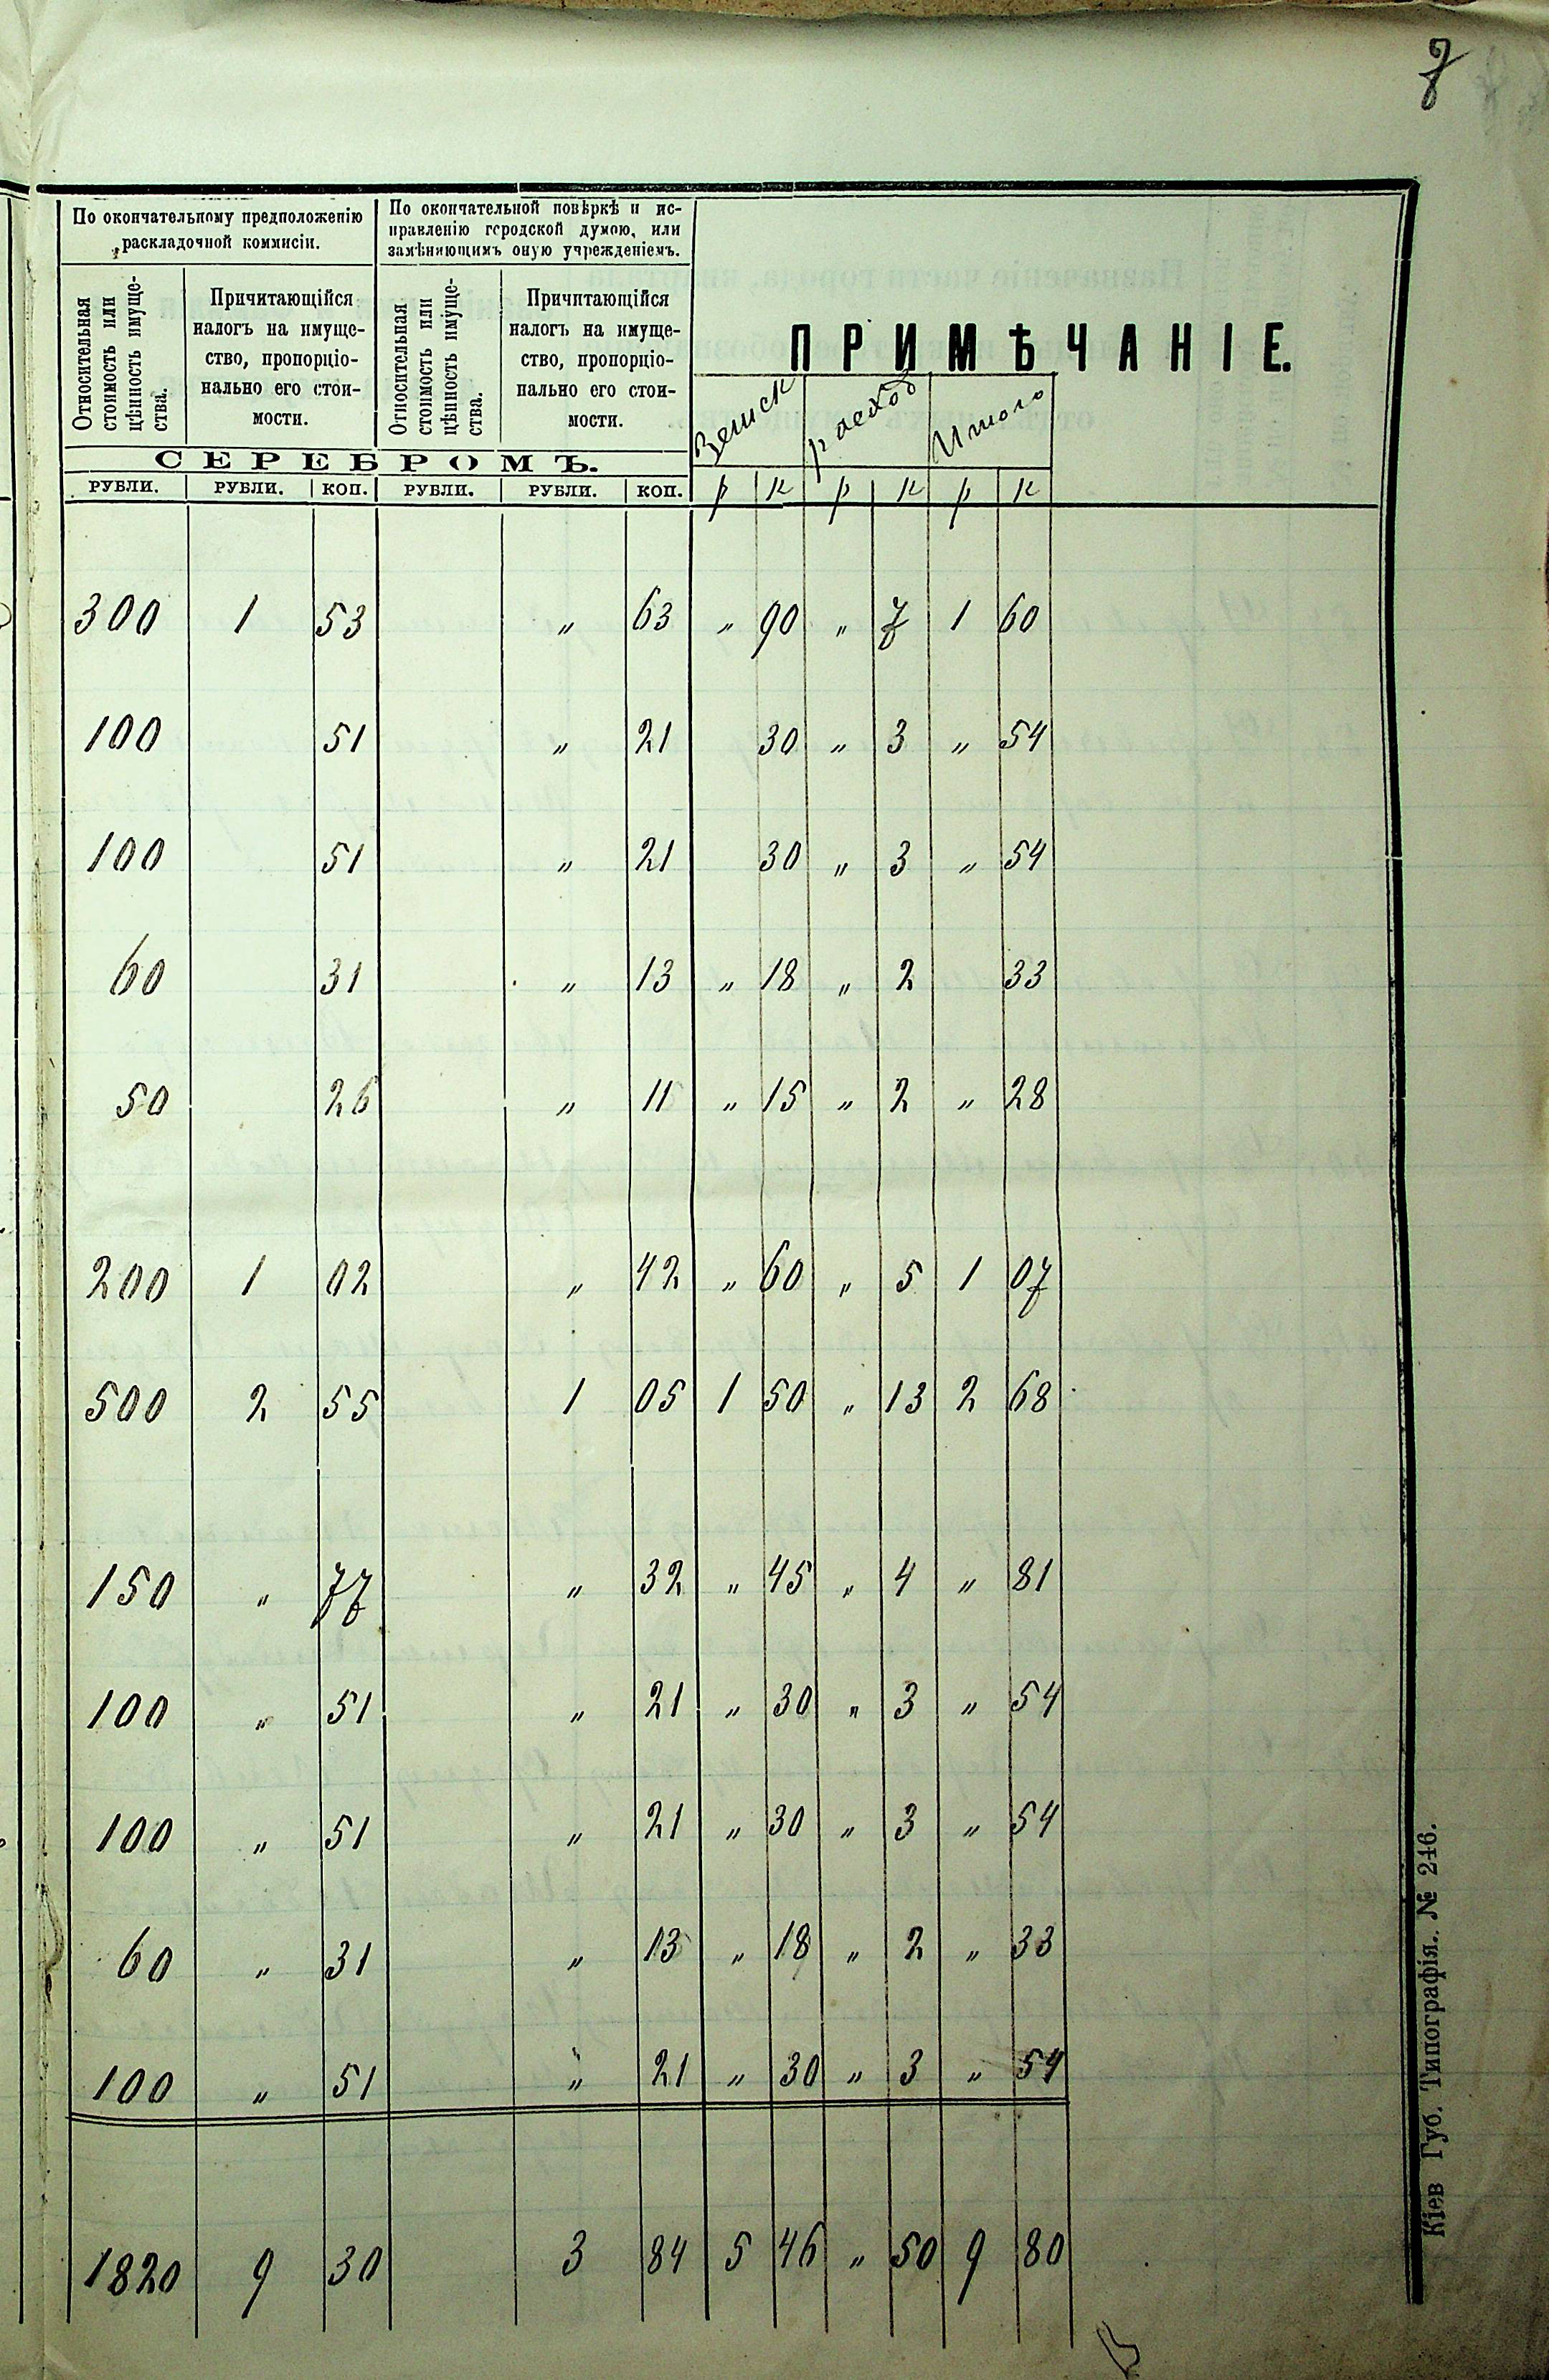 7
По окончательному предположенію
раскладочной коммисіи.
По окончательной повѣркѣ и ис-
правленію городской думою, или
замѣняющимъ оную учрежденіемъ.
Относительная
стоимость или
цѣнность имуще-
ства.
Причитающійся
налогъ на имуще-
ство, пропорціо-
нально его стои-
мости.
Относительная
стоимость или
цѣнность имуще-
ства.
Причитающійся
налогъ на имуще-
ство, пропорціо-
нально его стои-
мости.
ПРИМѢЧАНІЕ.
Земск расход Итого
СЕРЕБРОМЪ.
РУБЛИ. РУБЛИ. КОП. РУБЛИ. РУБЛИ. КОП. р к р к р к
300 1 53 „ 63 „ 90 „ 7 1 60
100 51 „ 21 30 „ 3 „ 54
100 51 „ 21 30 „ 3 „ 54
60 31 „ 13 „ 18 „ 2 33
50 26 „ 11 „ 15 „ 2 „ 28
200 1 02 „ 42 „ 60 „ 5 1 07
500 2 55 1 05 1 50 „ 13 2 68
150 „ 77 „ 32 „ 45 „ 4 „ 81
100 „ 51 „ 21 „ 30 „ 3 „ 54
100 „ 51 „ 21 „ 30 „ 3 „ 54
60 „ 31 „ 13 „ 18 „ 2 „ 33
100 „ 51 „ 21 „ 30 „ 3 „ 54
1820 9 30 3 84 5 46 „ 50 9 80
Кіев Губ. Типографія. № 246.